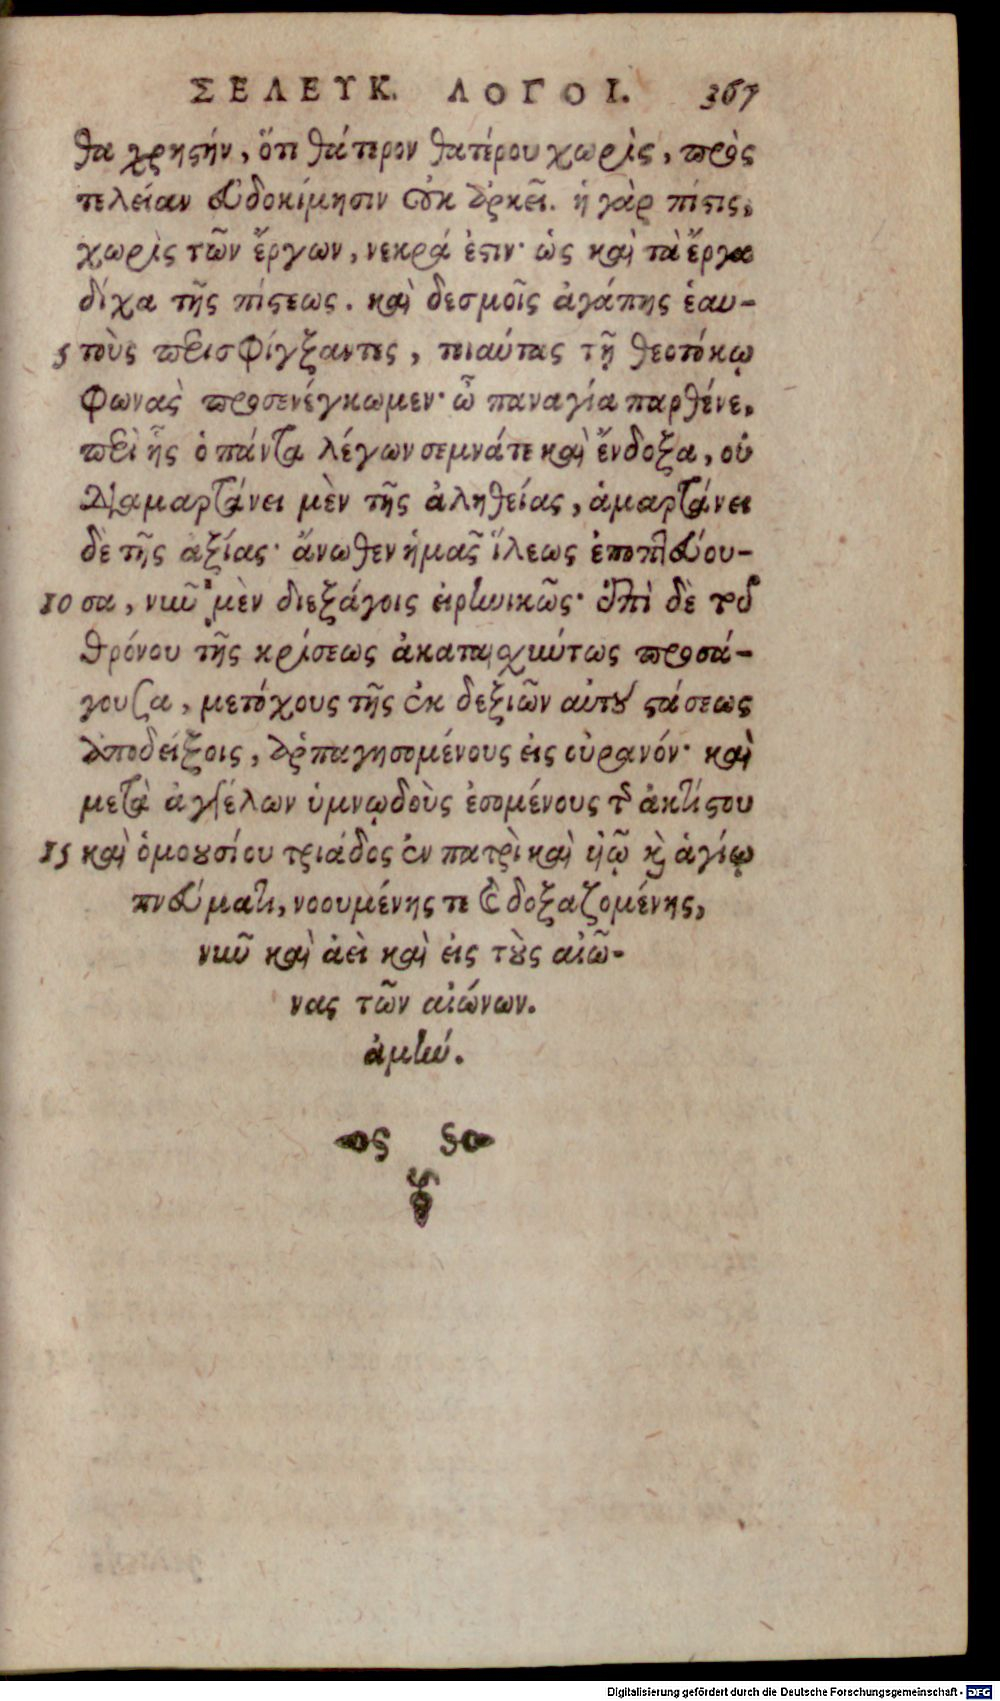 ΣΕΛΕΥΚ. ΛΟΓΟΙ. 367
θα χρηστὴν, ὅτι θάτερον θατέρου χωρὶς, πρὸς
τελείαν εὐδοκίμησιν οὐκ ἀρκεῖ. ἡ γὰρ πίστις,
χωρὶς τῶν ἔργων, νεκρά ἐστιν· ὡς καὶ τὰ ἔργα
δίχα τῆς πίστεως. καὶ δεσμοῖς ἀγάπης ἑαυ-
5 τοὺς περισφίγξαντες, τοιαύτας τῇ θεοτόκῳ
φωνὰς προσενέγκωμεν· ὦ παναγία παρθένε,
περὶ ἧς ὁ πάντα λέγων σεμνά τε καὶ ἔνδοξα, οὐ
διαμαρτάνει μὲν τῆς ἀληθείας, ἁμαρτάνει
δὲ τῆς ἀξίας· ἄνωθεν ἡμᾶς ἵλεως ἐποπτεύου-
10 σα, νῦν μὲν διεξάγοις εἰρηνικῶς· ἐπὶ δὲ τοῦ
θρόνου τῆς κρίσεως ἀκαταισχύντως προσά-
γουσα, μετόχους τῆς ἐκ δεξιῶν αὐτοῦ στάσεως
ἀποδείξοις, ἁρπαγησομένους εἰς οὐρανόν· καὶ
μετὰ ἀγγέλων ὑμνῳδοὺς ἐσομένους τῆς ἀκτίστου
15 καὶ ὁμοουσίου τριάδος ἐν πατρὶ καὶ υἱῷ καὶ ἁγίῳ
πνεύματι, νοουμένης τε καὶ δοξαζομένης,
νῦν καὶ ἀεὶ καὶ εἰς τοὺς αἰῶ-
νας τῶν αἰώνων.
ἀμήν.
Digitalisierung gefördert durch die Deutsche Forschungsgemeinschaft - DFG